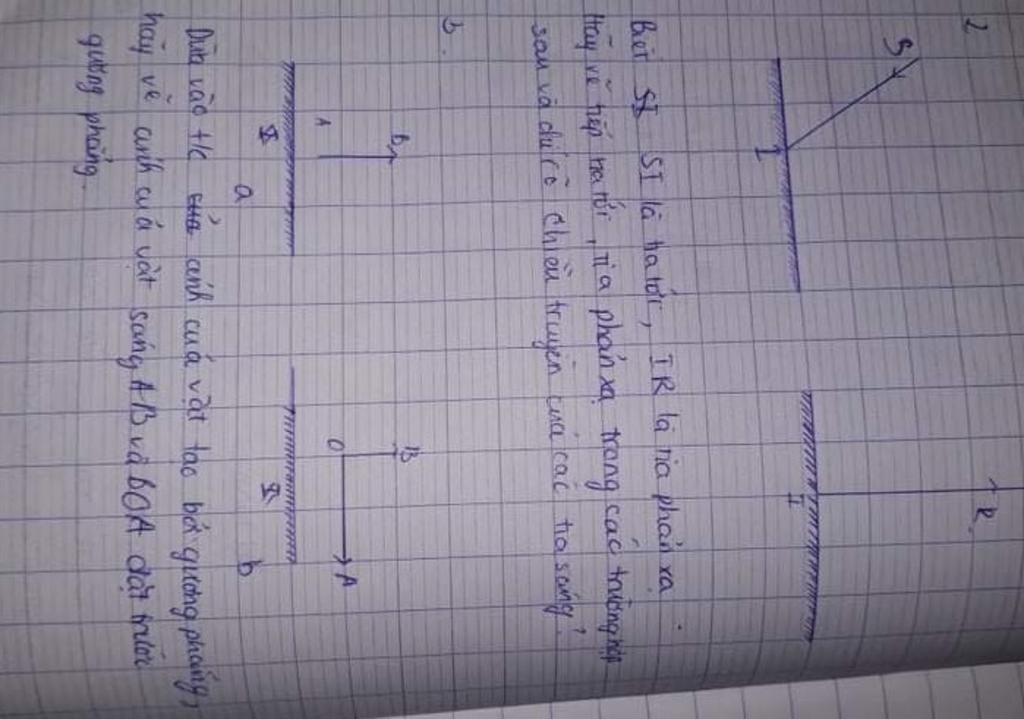 2
S
I
I
R
Biết SI SI là tia tới, IR là tia phản xạ.
Hãy vẽ tiếp tia tới, tia phản xạ trong các trường hợp
sau và chỉ rõ chiều truyền của các tia sáng!
3.
A
B
a
O
B
A
b
Dựa vào t/c của ảnh của vật tạo bởi gương phẳng,
hãy vẽ ảnh của vật sáng AB và BOA đặt trước
gương phẳng.